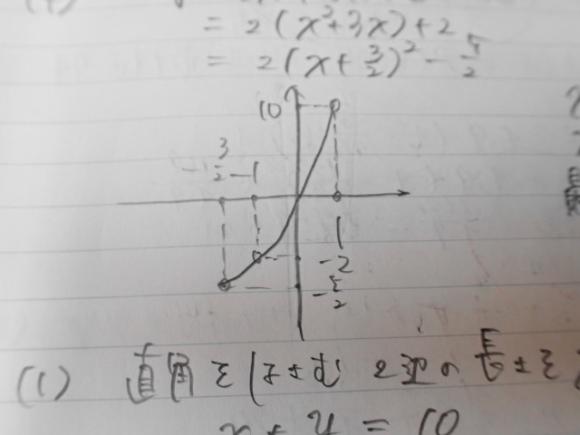 = 2(x²+3x)+2
= 2(x+3/2)² - 5/2
10
-3/2 -1
1
-2
-5/2
(1) 直角をはさむ2辺の長さを
x + y = 10